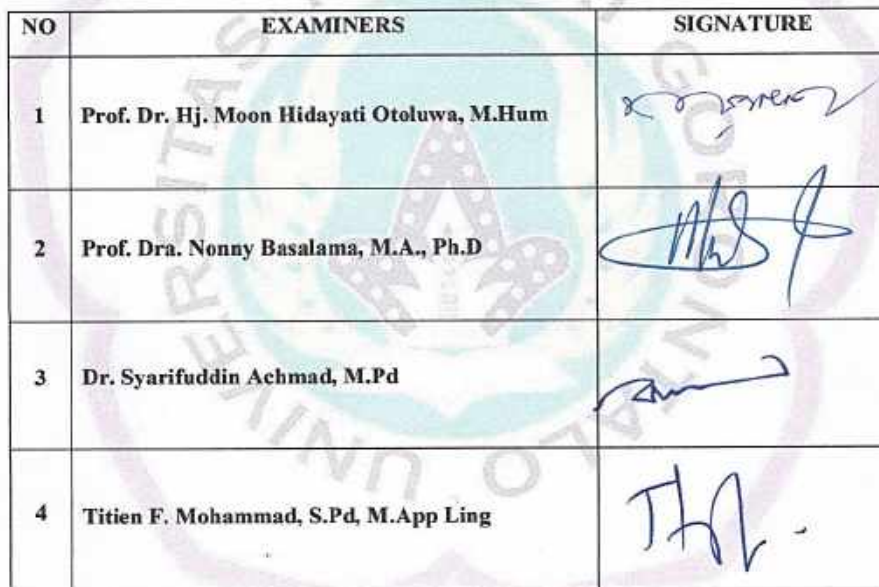 NO EXAMINERS SIGNATURE
1 Prof. Dr. Hj. Moon Hidayati Otoluwa, M.Hum
2 Prof. Dra. Nonny Basalama, M.A., Ph.D
3 Dr. Syarifuddin Achmad, M.Pd
4 Titien F. Mohammad, S.Pd, M.App Ling
UNIVERSITAS GORONTALO